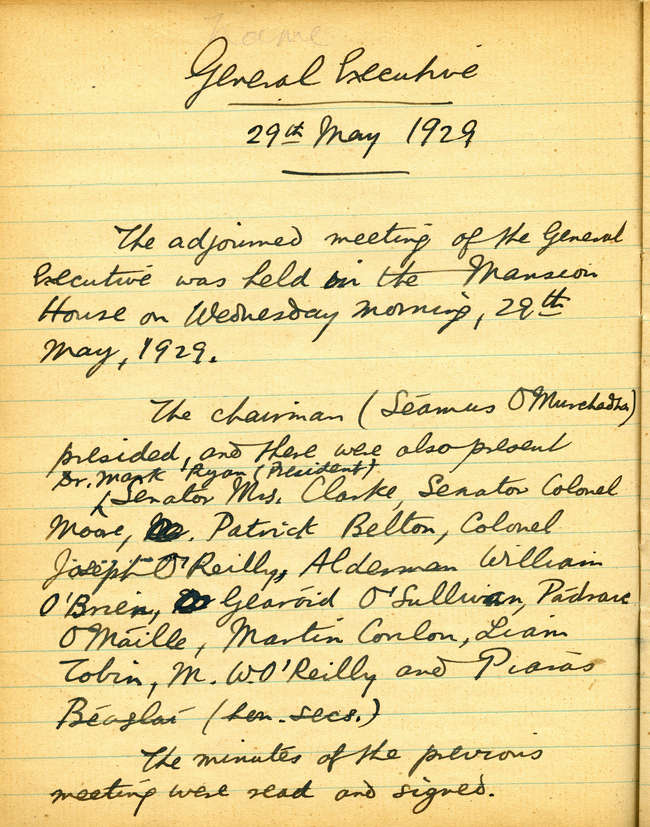 General Executive
29th May 1929
The adjourned meeting of the General
Executive was held in the Mansion
House on Wednesday morning, 29th
May, 1929.
The chairman (Séamus O Murchadha)
presided, and there were also present
Dr. Mark Ryan (President)
Senator Mrs. Clarke, Senator Colonel
Moore, Patrick Belton, Colonel
Joseph O'Reilly, Alderman William
O'Brien, Gearóid O'Sullivan, Pádraic
O Máille, Martin Conlon, Liam
Tobin, M. W. O'Reilly and Piaras
Béaslaí (hon. secs.)
The minutes of the previous
meeting were read and signed.